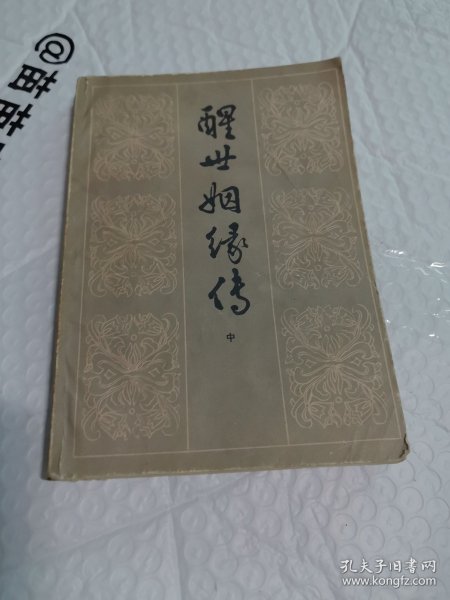 醒世姻缘传
中
@苗苗
孔夫子旧书网
www.kongfz.com